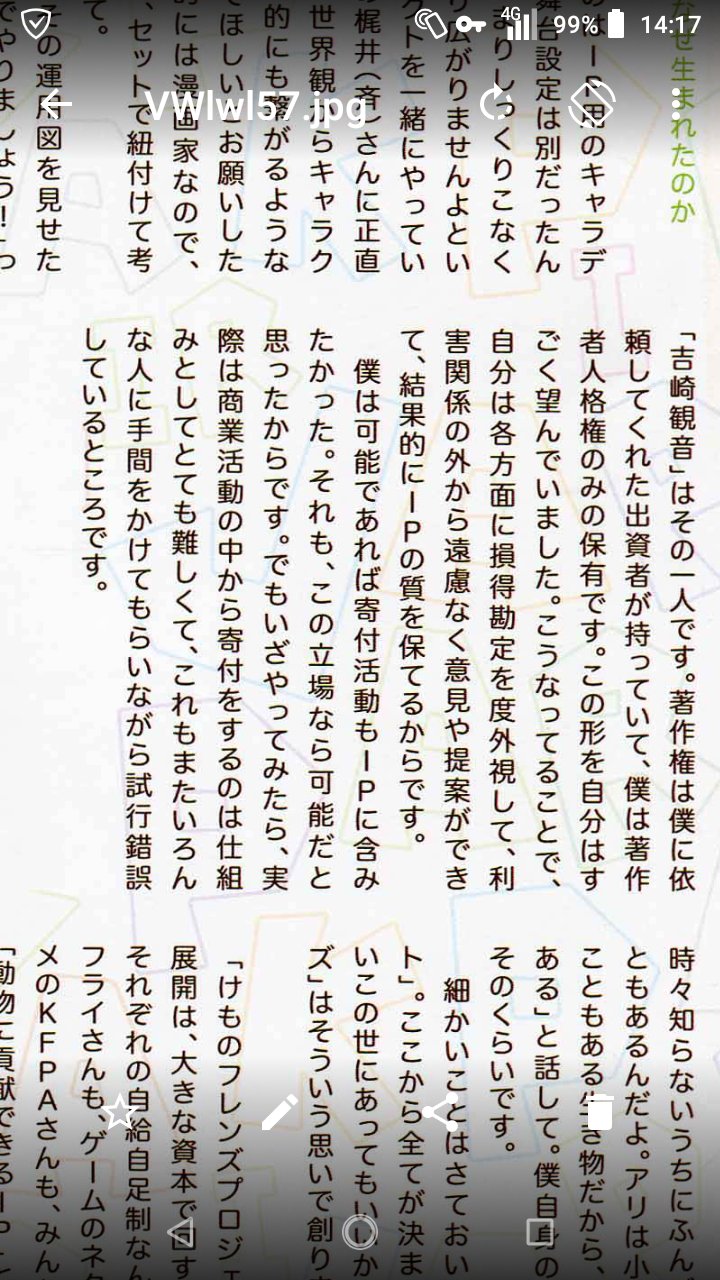 4G
99%
14:17
VWlwl57.jpg
なぜ生まれたのか
のボード用のキャラデ
舞台設定は別だったん
まりしっくりこなく
り広がりませんよとい
クトを一緒にやってい
の梶井(斉)さんに正直
世界観からキャラク
的にも繋がるような
てほしいとお願いした
的には漫画家なので、
、セットで紐付けて考
て。
その運用図を見せた
でやりましょう!」っ
「吉崎観音」はその一人です。著作権は僕に依
頼してくれた出資者が持っていて、僕は著作
者人格権のみの保有です。この形を自分はす
ごく望んでいました。こうなってることで、
自分は各方面に損得勘定を度外視して、利
害関係の外から遠慮なく意見や提案ができ
て、結果的にIPの質を保てるからです。
僕は可能であれば寄付活動もIPに含み
たかった。それも、この立場なら可能だと
思ったからです。でもいざやってみたら、実
際は商業活動の中から寄付をするのは仕組
みとしてとても難しくて、これもまたいろん
な人に手間をかけてもらいながら試行錯誤
しているところです。
時々知らないうちにふん
ともあるんだよ。アリは小
こともある生き物だから、
ある」と話して。僕自身の
そのくらいです。
細かいことはさておい
ト」。ここから全てが決ま
いこの世にあってもいいか
ズ」はそういう思いで創り
「けものフレンズプロジェ
展開は、大きな資本で回す
それぞれの自給自足制なん
フライさんも、ゲームのネク
メのKFPAさんも、みん
「動物に貢献できるIPに